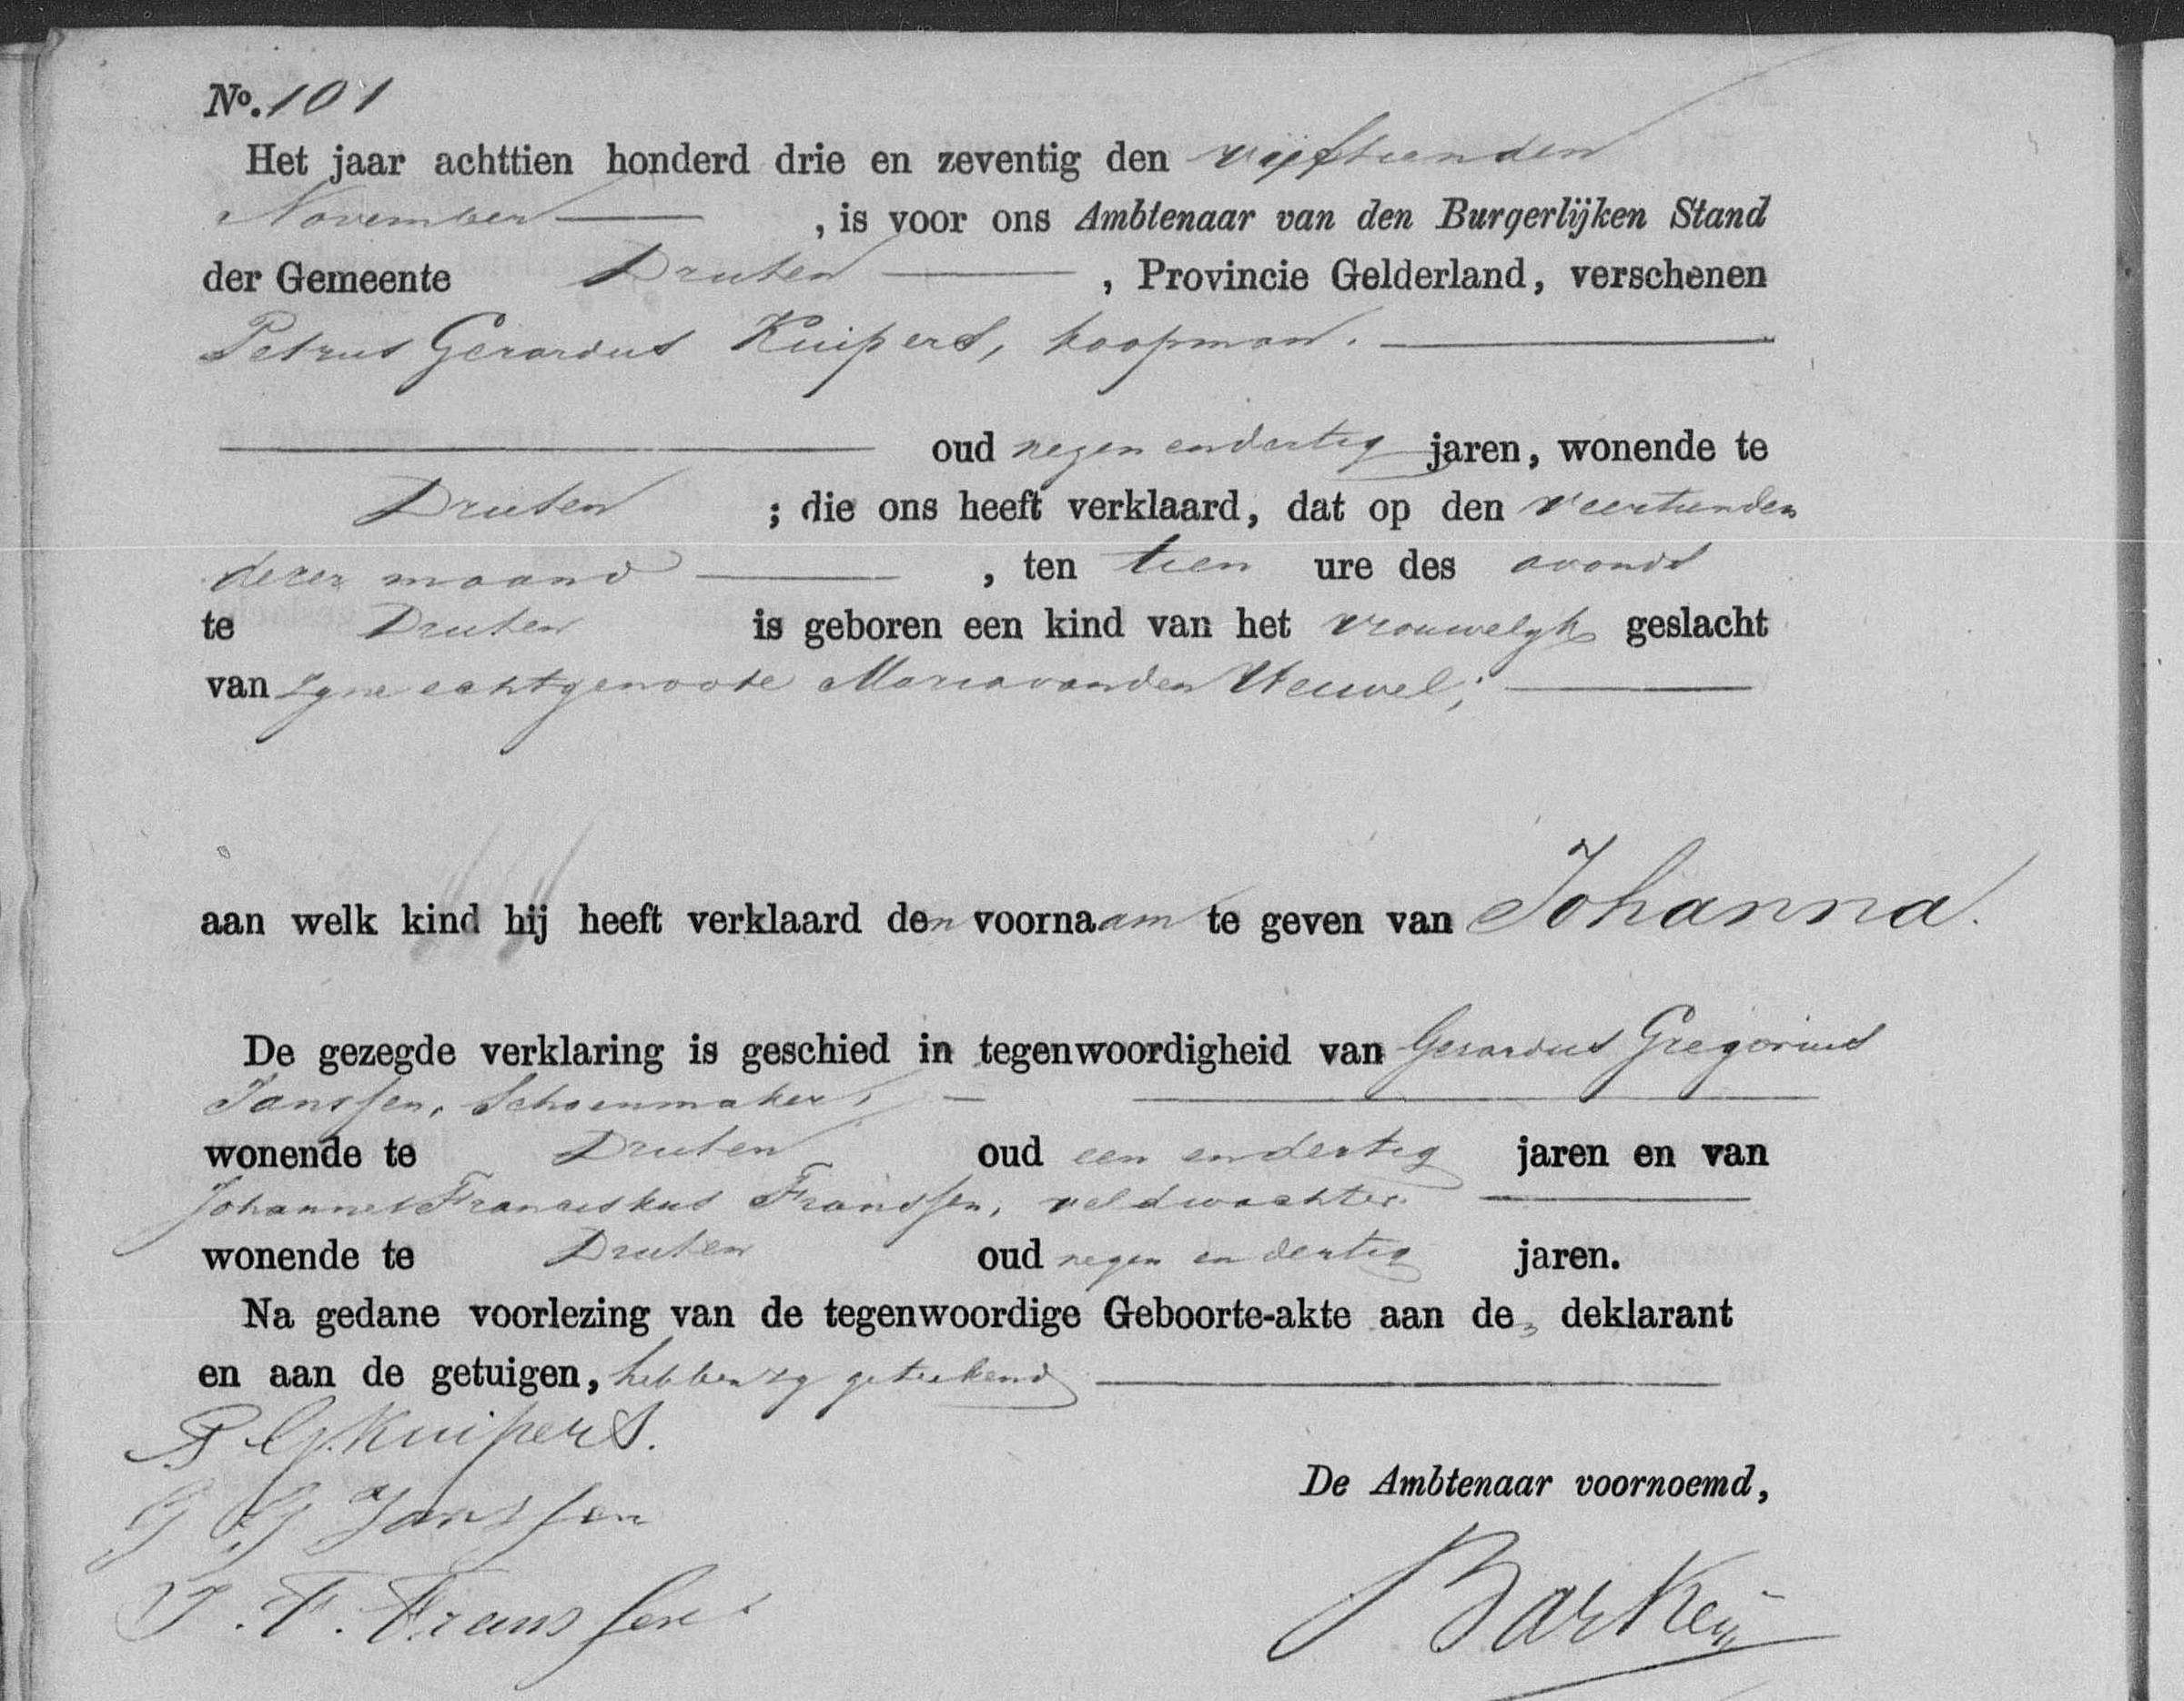 No. 101
Het jaar achttien honderd drie en zeventig den vijftienden
November , is voor ons Ambtenaar van den Burgerlijken Stand
der Gemeente Druten , Provincie Gelderland, verschenen
Petrus Gerardus Kuipers, koopman.
oud negen en dertig jaren, wonende te
Druten ; die ons heeft verklaard, dat op den veertienden
dezer maand , ten tien ure des avonds
te Druten is geboren een kind van het vrouwelyk geslacht
van zyne echtgenoote Maria van den Heuvel;
aan welk kind hij heeft verklaard den voornaam te geven van Johanna.
De gezegde verklaring is geschied in tegenwoordigheid van Gerardus Gregorius
Janssen, Schoenmaker,
wonende te Druten oud een en dertig jaren en van
Johannes Franciskus Franssen, veldwachter.
wonende te Druten oud negen en dertig jaren.
Na gedane voorlezing van de tegenwoordige Geboorte-akte aan den deklarant
en aan de getuigen, hebben zy geteekend
P G Kuipers.
De Ambtenaar voornoemd,
G G Janssen
J. F. Franssen